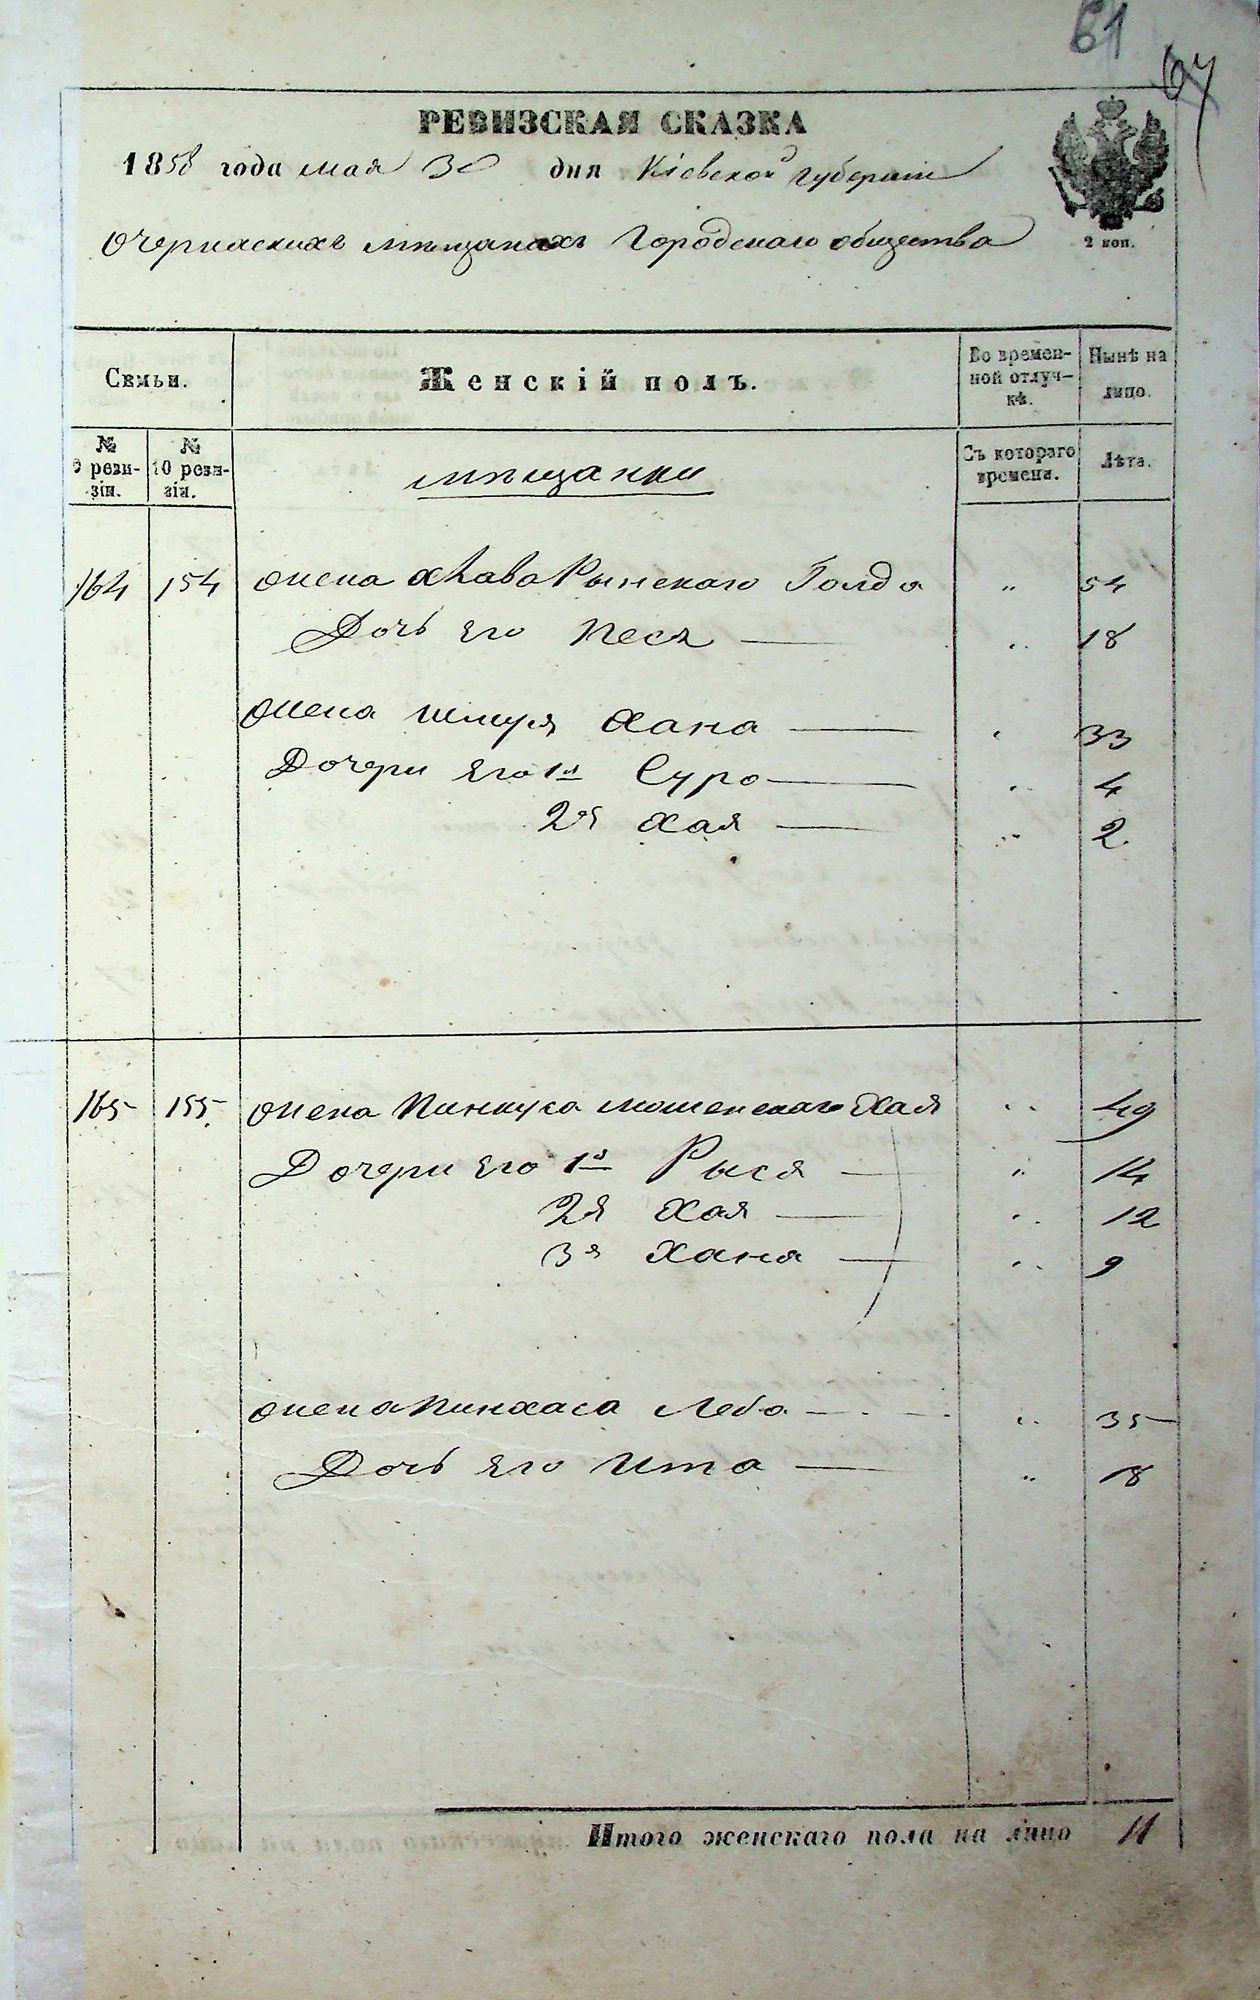 61
67
РЕВИЗСКАЯ СКАЗКА
1858 года мая 30 дня Кіевской губерніи
о черкаскихъ мѣщанахъ Городскаго общества
2 коп.
Семьи. Женскій полъ. Во времен-ной отлуч-кѣ. Нынѣ на лицо.
№ 9 реви-зіи. № 10 реви-зіи. мѣщанки Съ котораго времени. Лѣта.
164 154 жена Рынскаго Голда " 54
Дочь его Песя — " 18
жена Шмуля Хана — " 33
Дочери его 1я Сура — " 4
2я Хая — " 2
165 155 жена Пинкуса Мошенскаго Хая " 49
Дочери его 1я Рыся — " 14
2я Хая — " 12
3я Хана — " 9
жена Пинхаса Леба — " 35
Дочь его Ита — " 18
Итого женскаго пола на лицо 11